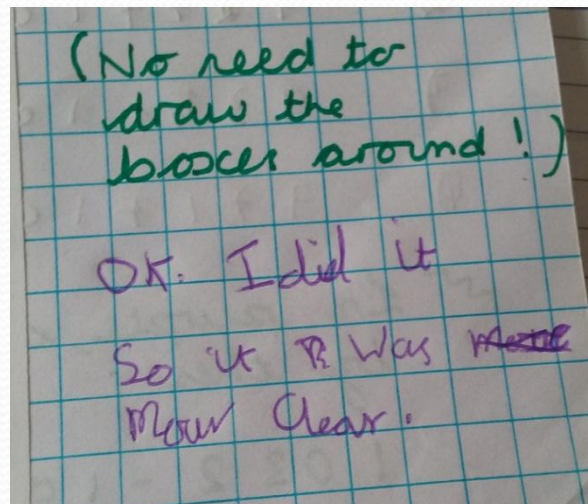 (No need to
draw the
boxes around!)
OK. I did it
So it Was
Mour Clear.